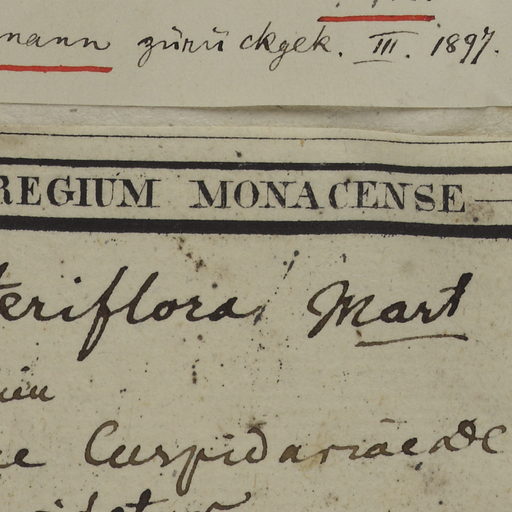 mann zürückgek. III. 1897.
REGIUM MONACENSE
teriflora Mart
Cuspidariae DC